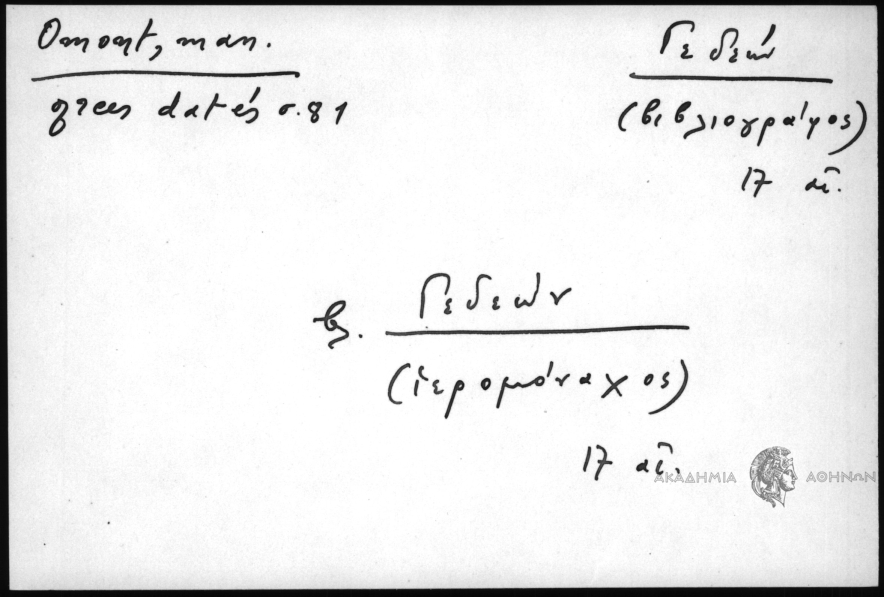 Omont, man.
grecs datés σ. 81
Γεδεών
(βιβλιογράφος)
17 αἰ.
βλ. Γεδεών
(ἱερομόναχος)
17 αἰ.
ΑΚΑΔΗΜΙΑ ΑΘΗΝΩΝ